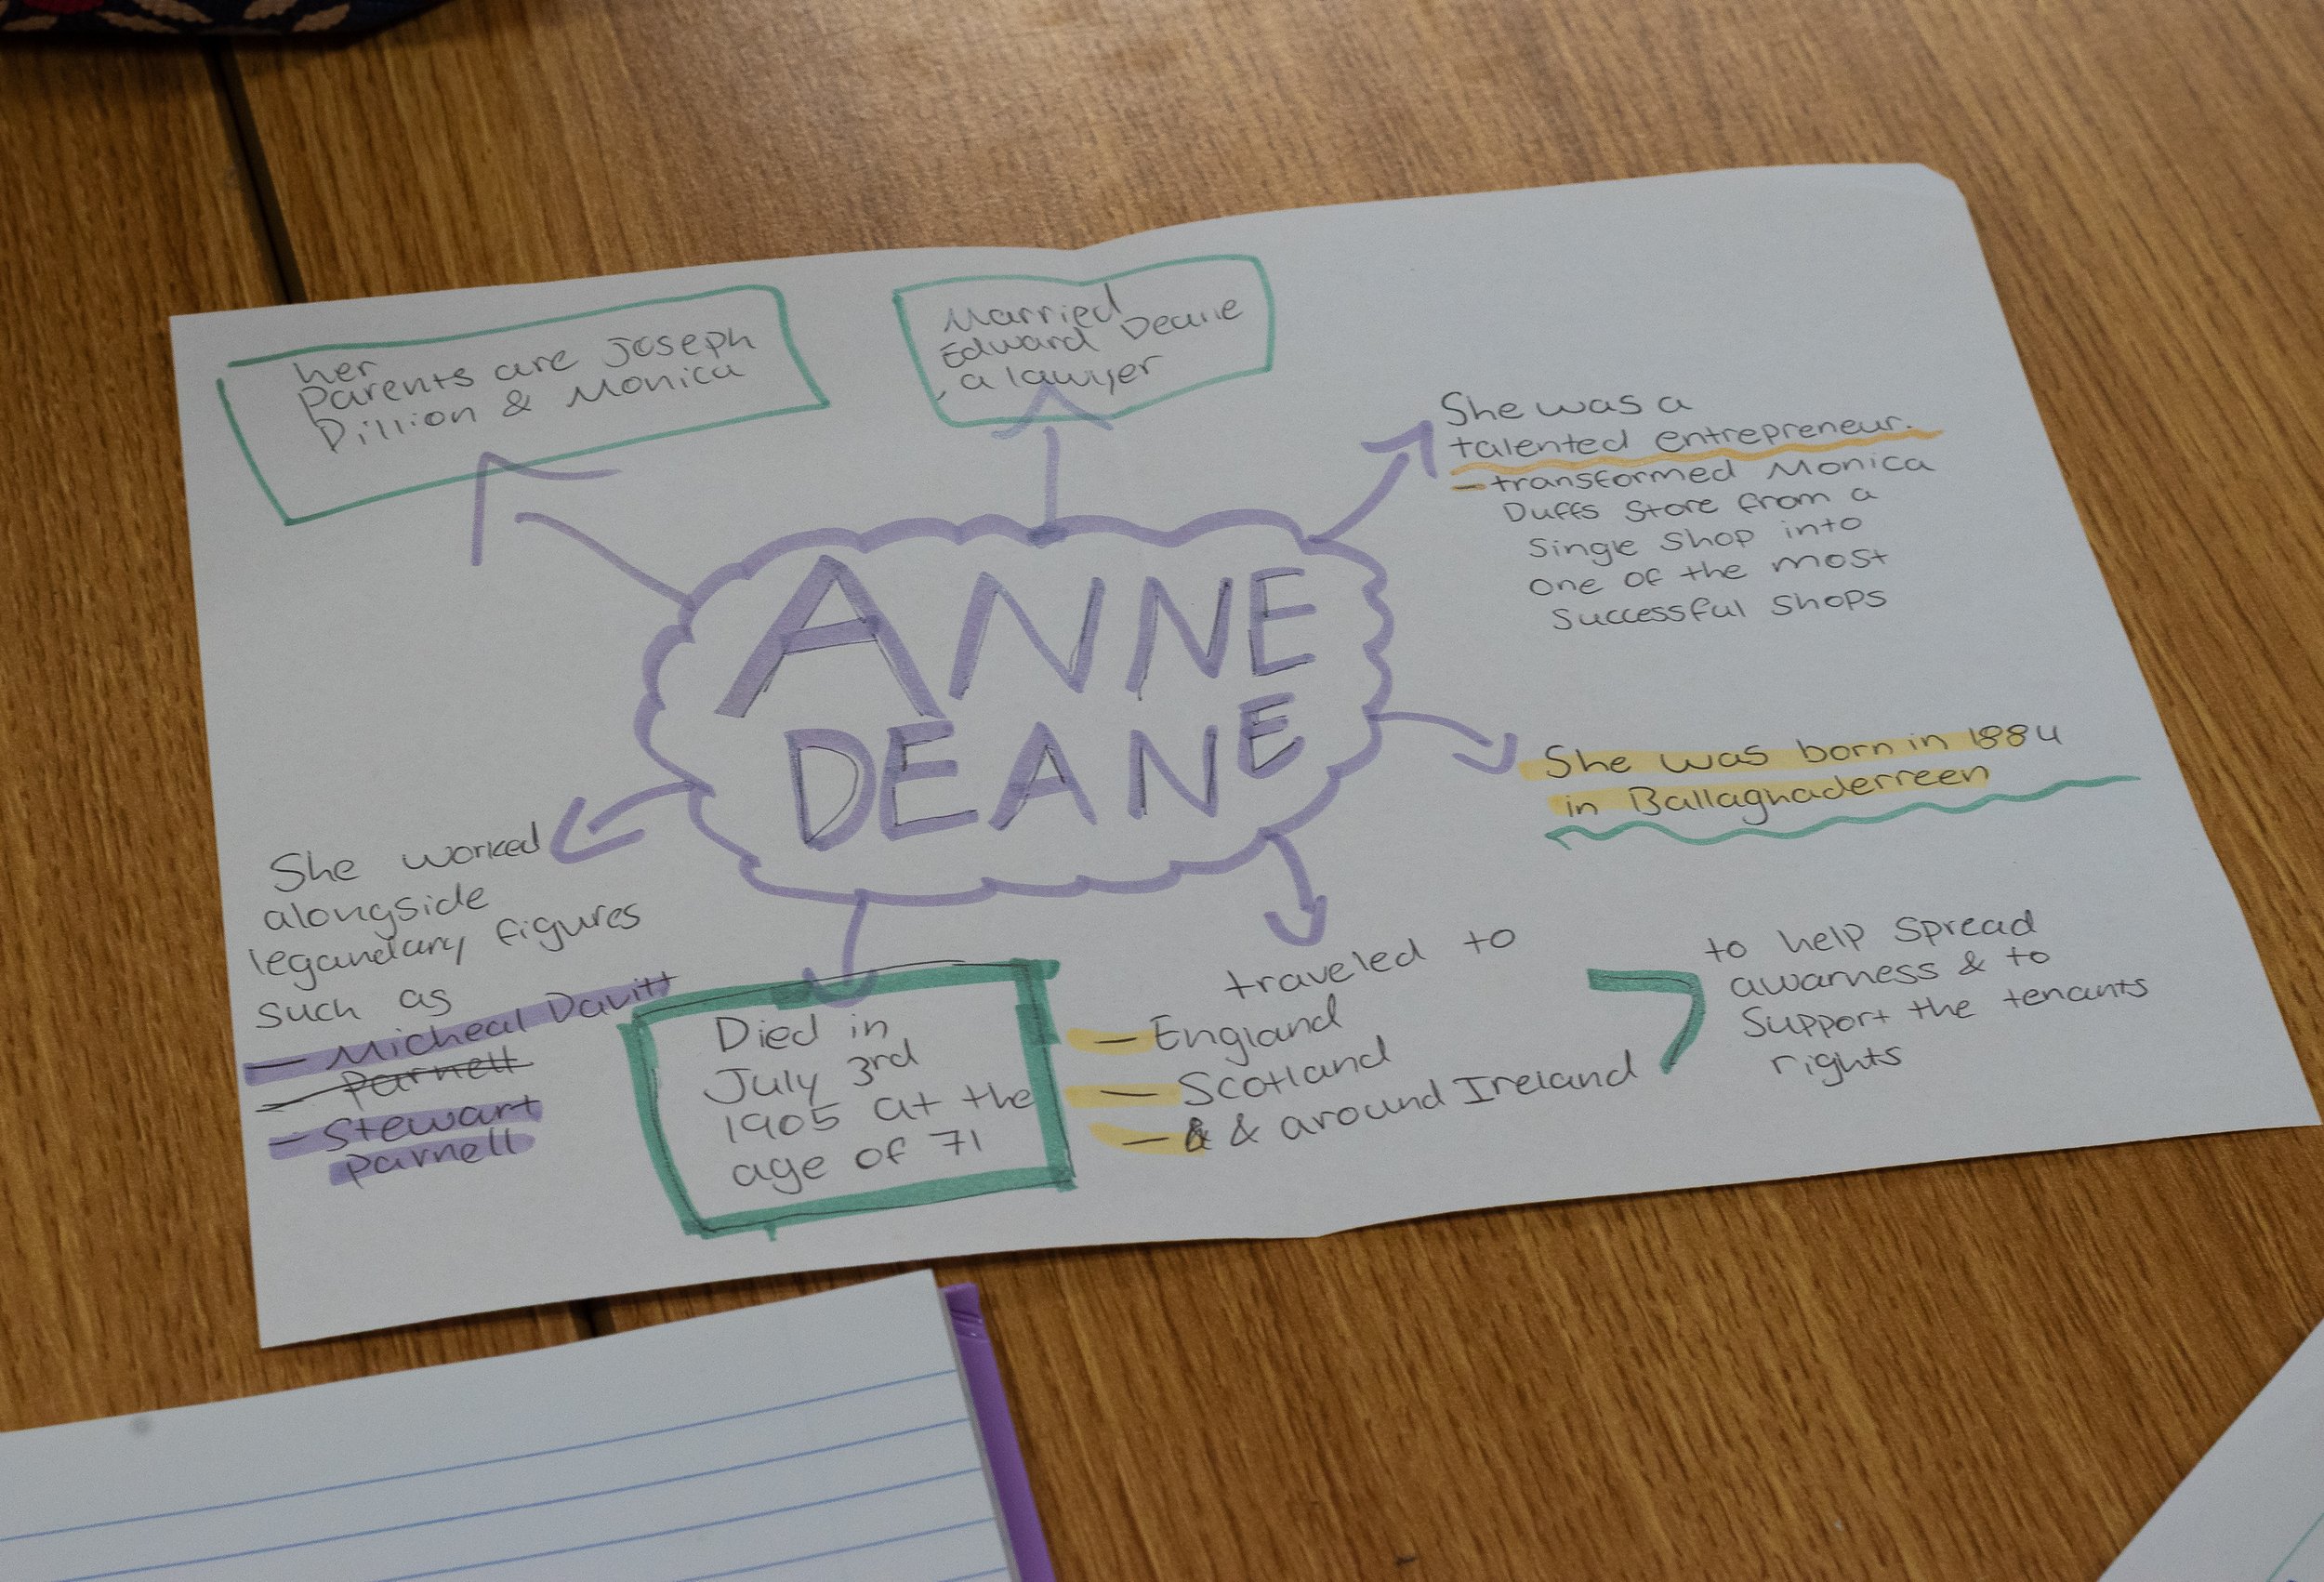 her
Parents are Joseph
Dillion & Monica
Married
Edward Deane
, a lawyer
She was a
talented entrepreneur.
- transformed Monica
Duffs Store from a
Single Shop into
One of the most
Successful Shops
ANNE
DEANE
She was born in 1884
in Ballaghaderreen
She worked
alongside
legandary figures
such as
- Micheal Davitt
- Parnell
- Stewart
Parnell
Died in
July 3rd
1905 at the
age of 71
traveled to
- England
- Scotland
- & & around Ireland
to help Spread
awarness & to
Support the tenants
rights